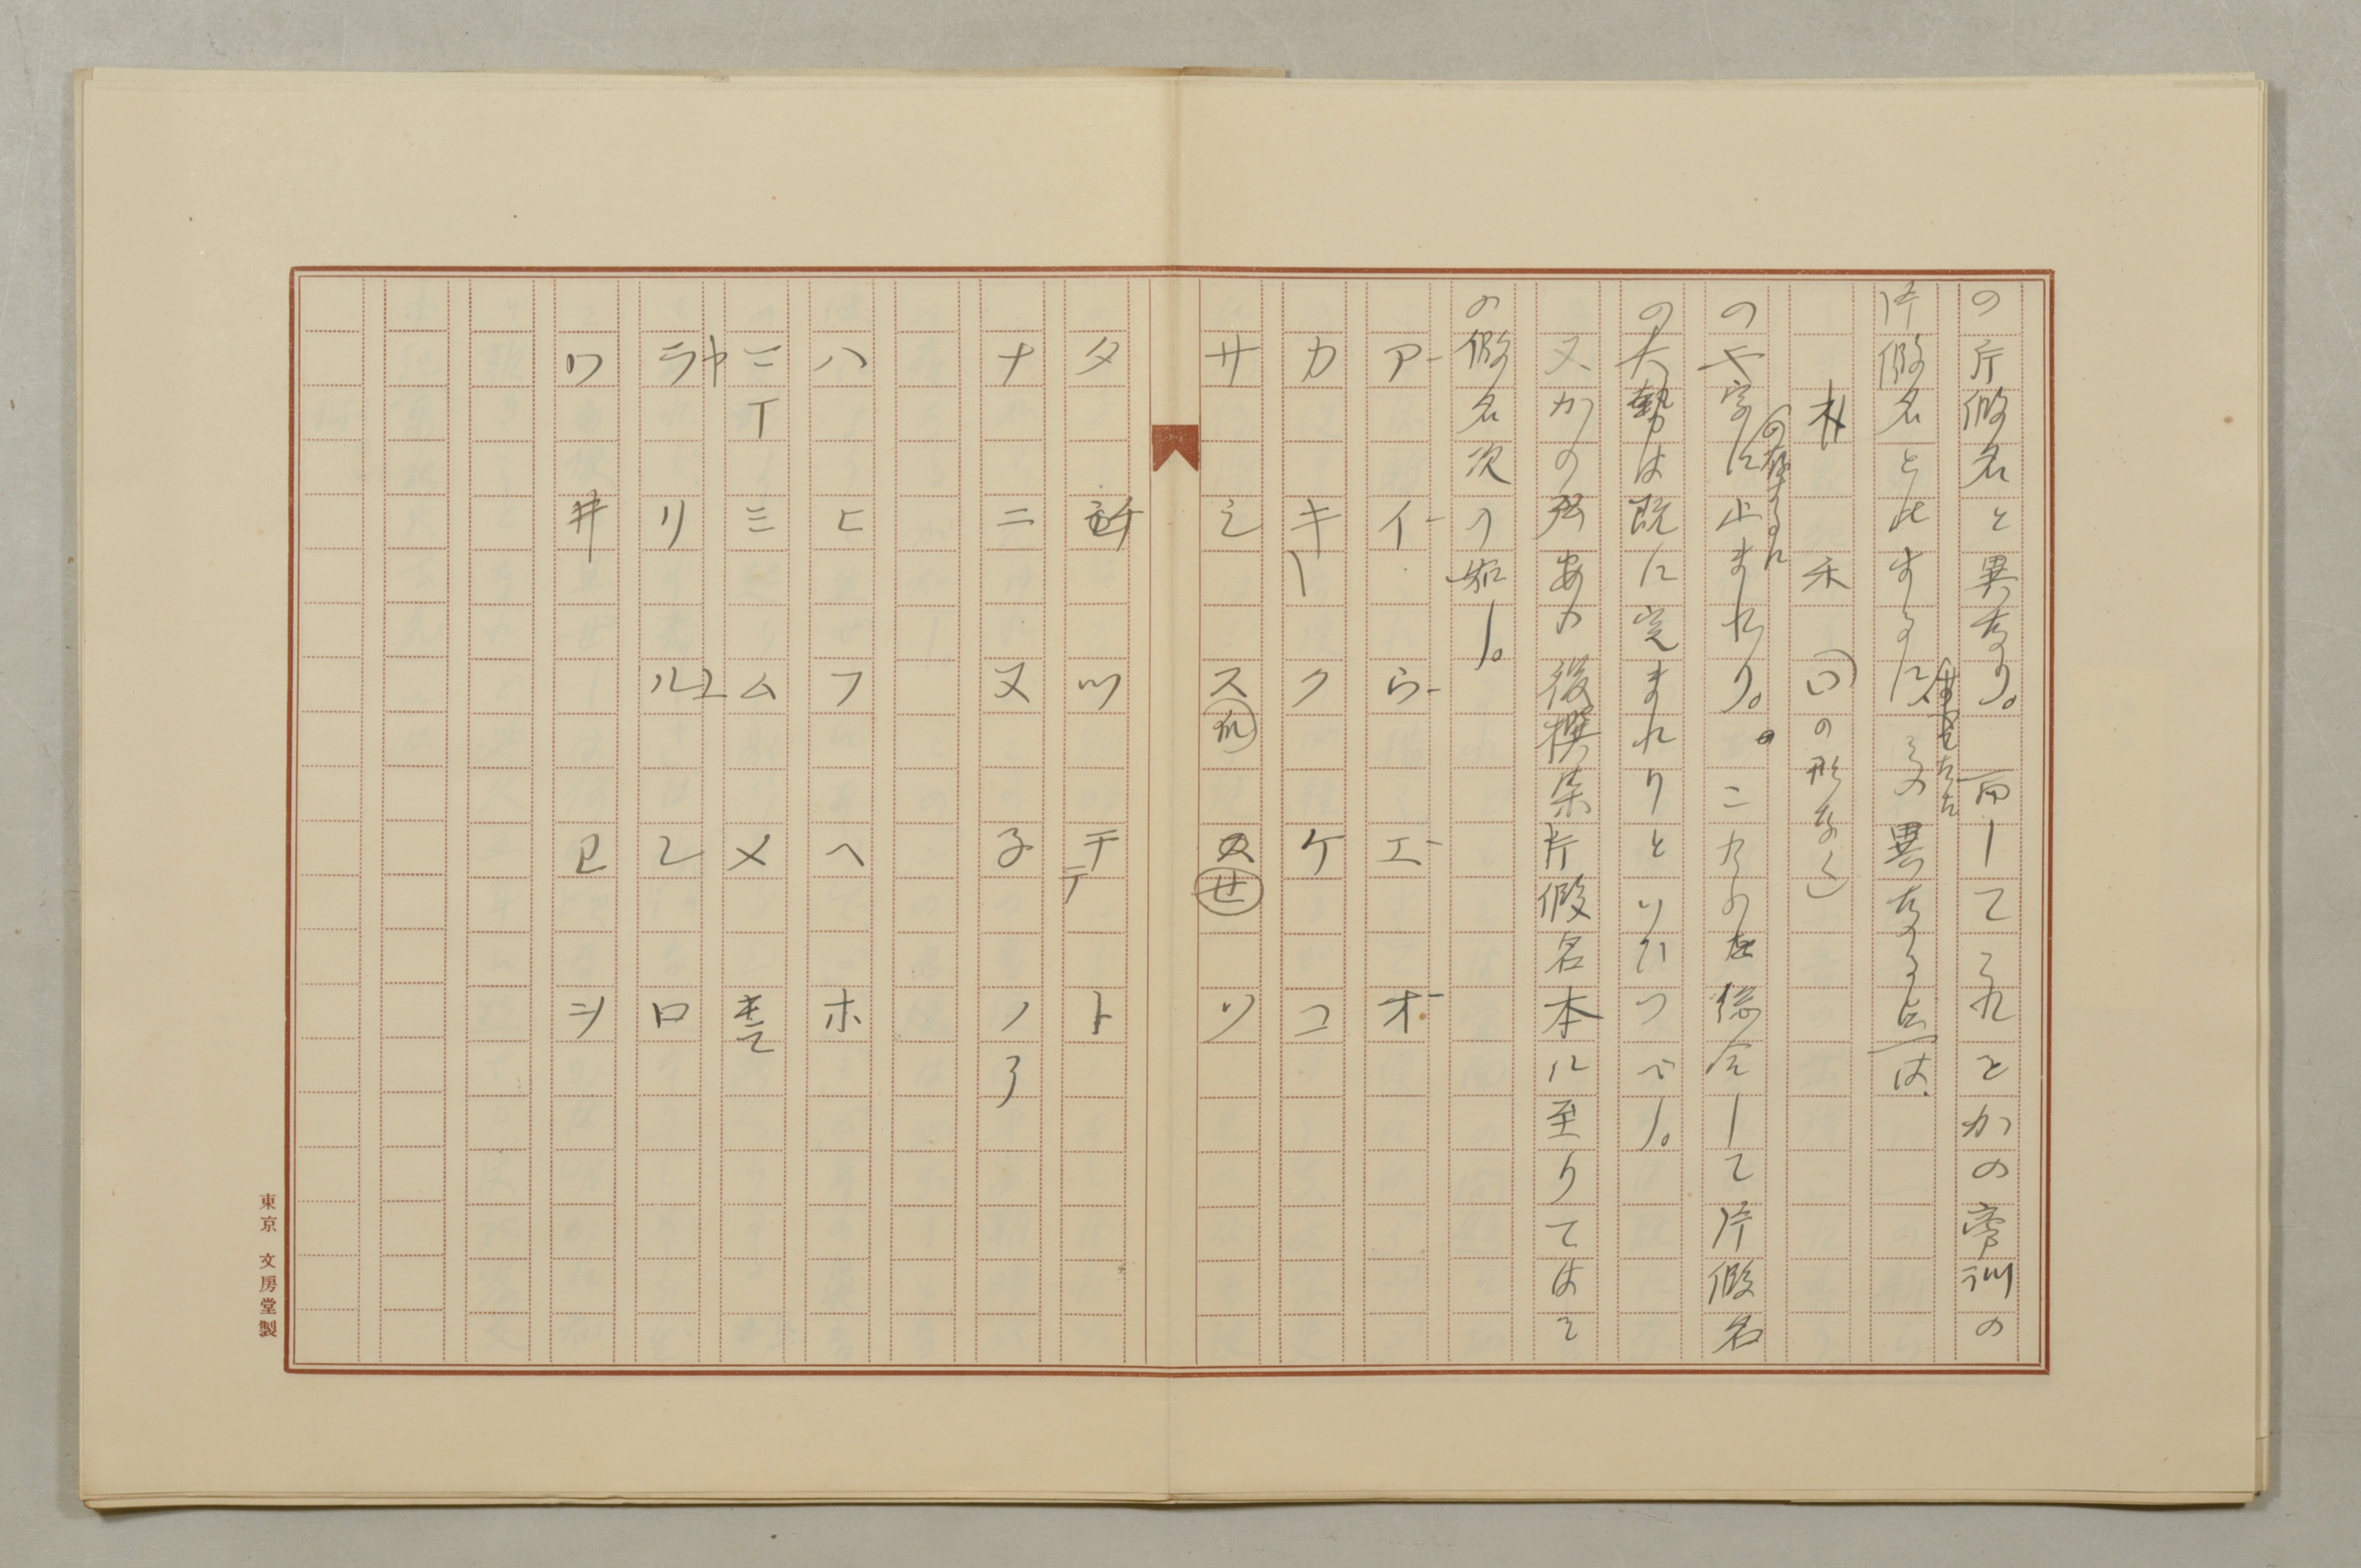 の片假名と異なり。而してこれをかの常訓の
片假名と比するに、その異なる点は、
ホ 禾 (口)の形なく
の字に止まれり。これの在総合して片假名
の存するに
の大勢は既に定まれりといひつべし。
又かの弘安の後撰集片假名本ル至りてはそ
の假名次の如し。
ア イ ウ エ オ
カ キ ク ケ コ
サ シ ス セ ソ
タ チ ツ テ ト
ナ ニ ヌ 子 ノ 了
ハ ヒ フ ヘ ホ
三 丁 ミ ム メ モ
ヤ ラ リ ユ ル レ ロ
ワ 井 ヲ
東京 文房堂製